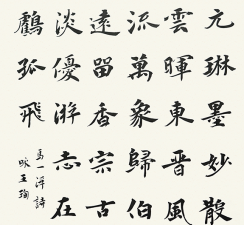 元琳墨妙散
雲暉東晋風
流萬象歸伯
遠留香宗古
淡優游志在
鸖孤飛
馬一洋詩
咏王珣